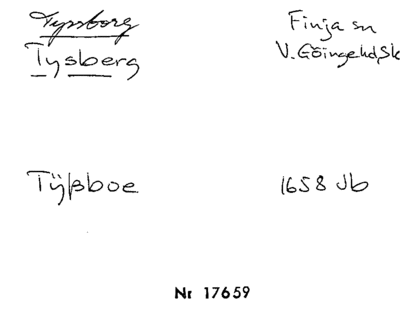 Tyssborg
Finja sn
Tysberg
V. Göingehd, Sk
Tÿßboe
1658 Jb
Nr 17659